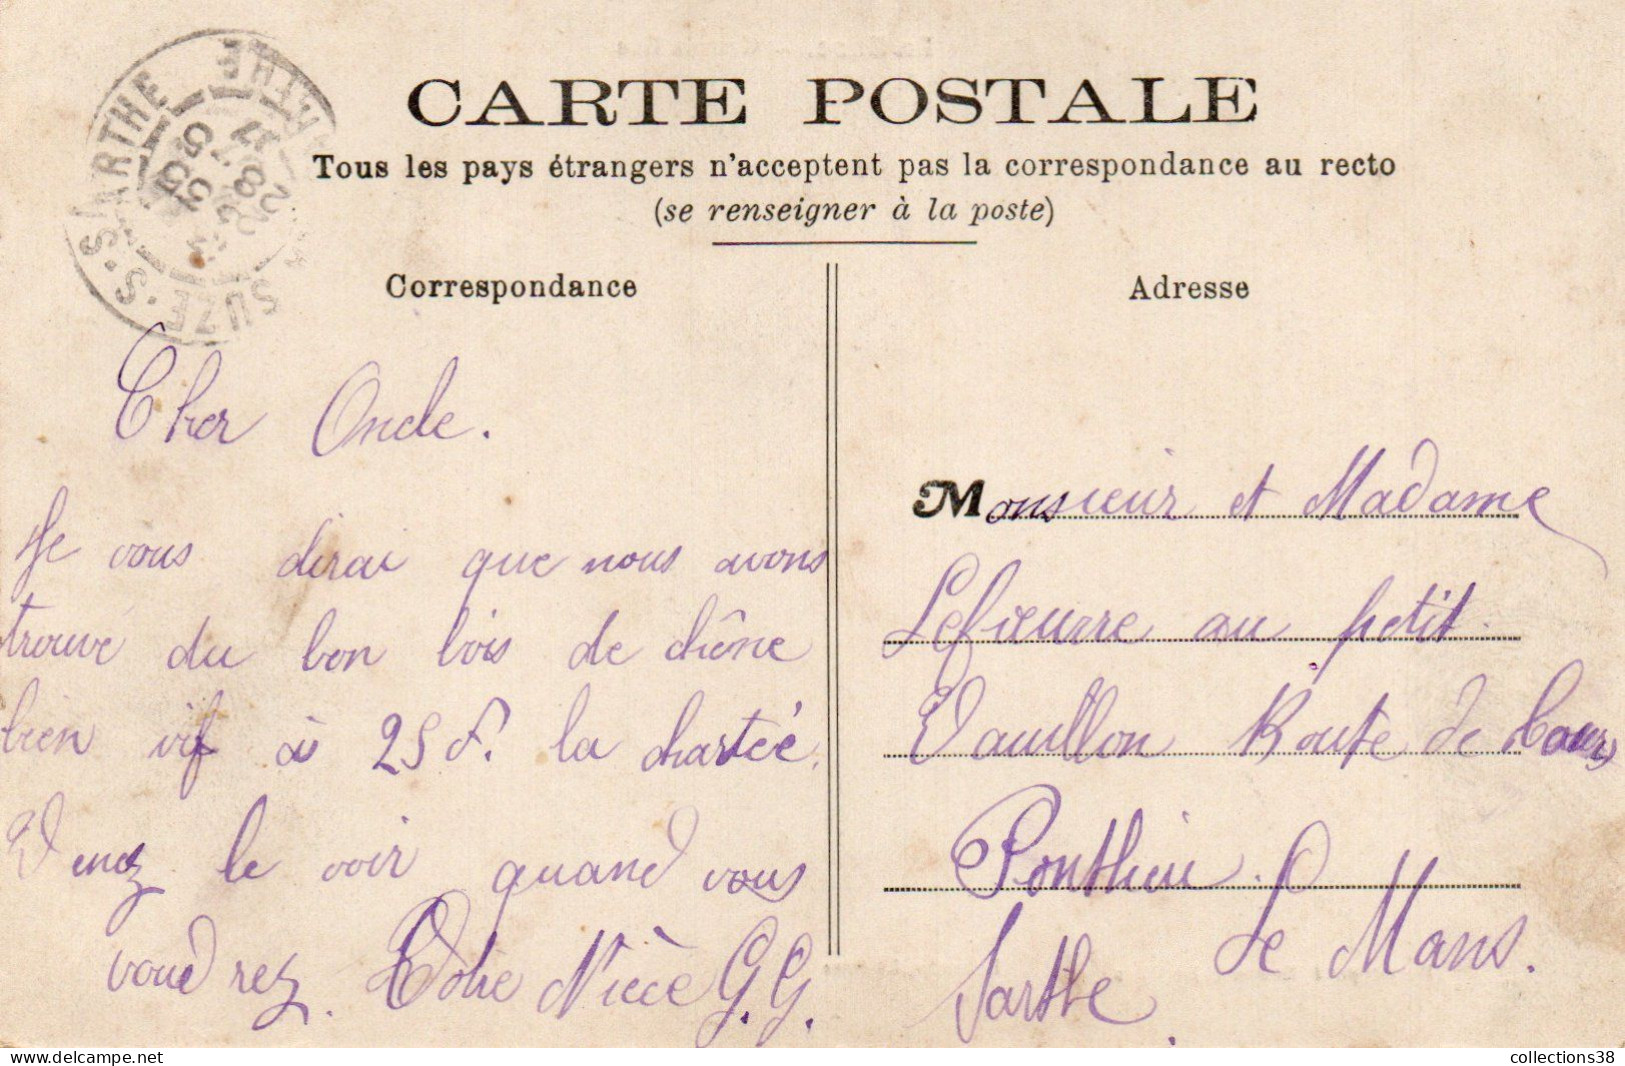 CARTE POSTALE
Tous les pays étrangers n'acceptent pas la correspondance au recto
(se renseigner à la poste)
Correspondance
Cher Oncle.
Je vous dirai que nous avons
trouvé du bon bois de chêne
bien vif à 25 f. la chartée.
Venez le voir quand vous
voudrez. Votre Nièce G. G.
Adresse
Monsieur et Madame
Lefieuvre au petit
Vauillon Route de
Ponthieu.
Le Mans.
Sarthe.
SUZE S. SARTHE
collections38